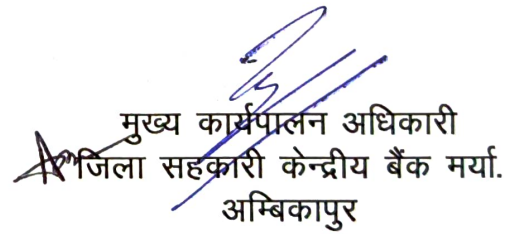 मुख्य कार्यपालन अधिकारी
जिला सहकारी केन्द्रीय बैंक मर्या.
अम्बिकापुर